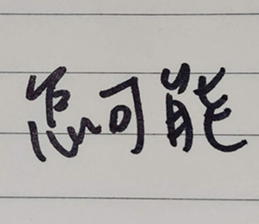 怎可能